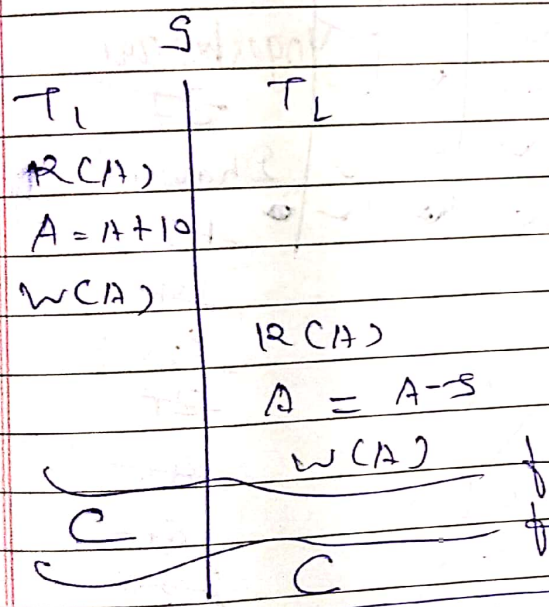 S
T1 T2
R(A)
A = A+10
W(A)
R(A)
A = A-5
W(A)
f
C
f
C